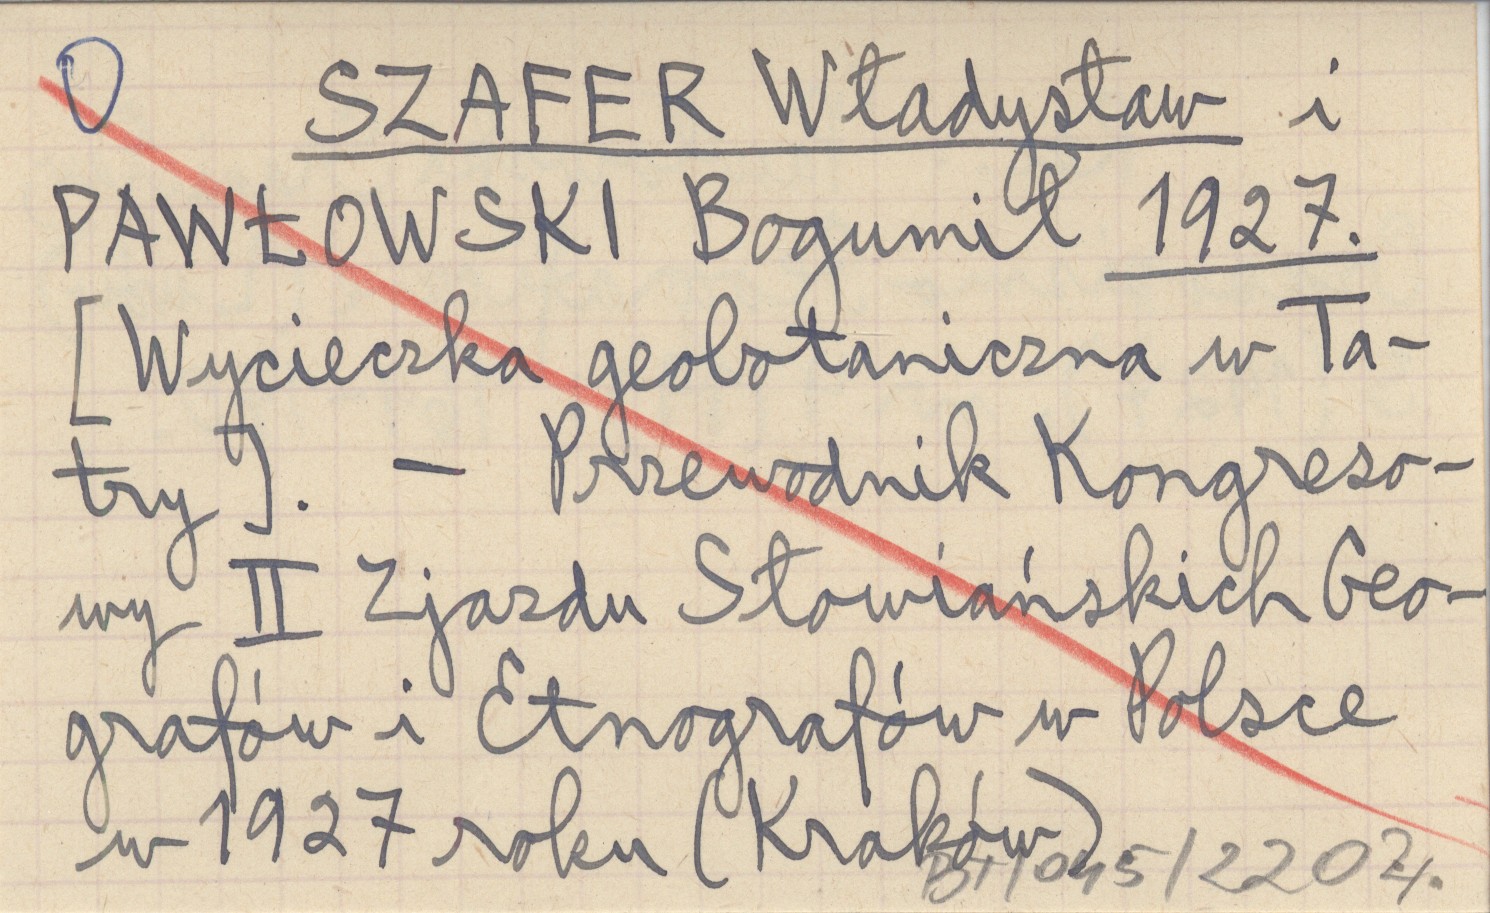 SZAFER Władysław i
PAWŁOWSKI Bogumił 1927.
[Wycieczka geobotaniczna w Ta-
try]. - Przewodnik Kongreso-
wy II Zjazdu Słowiańskich Geo-
grafów i Etnografów w Polsce
w 1927 roku (Kraków).